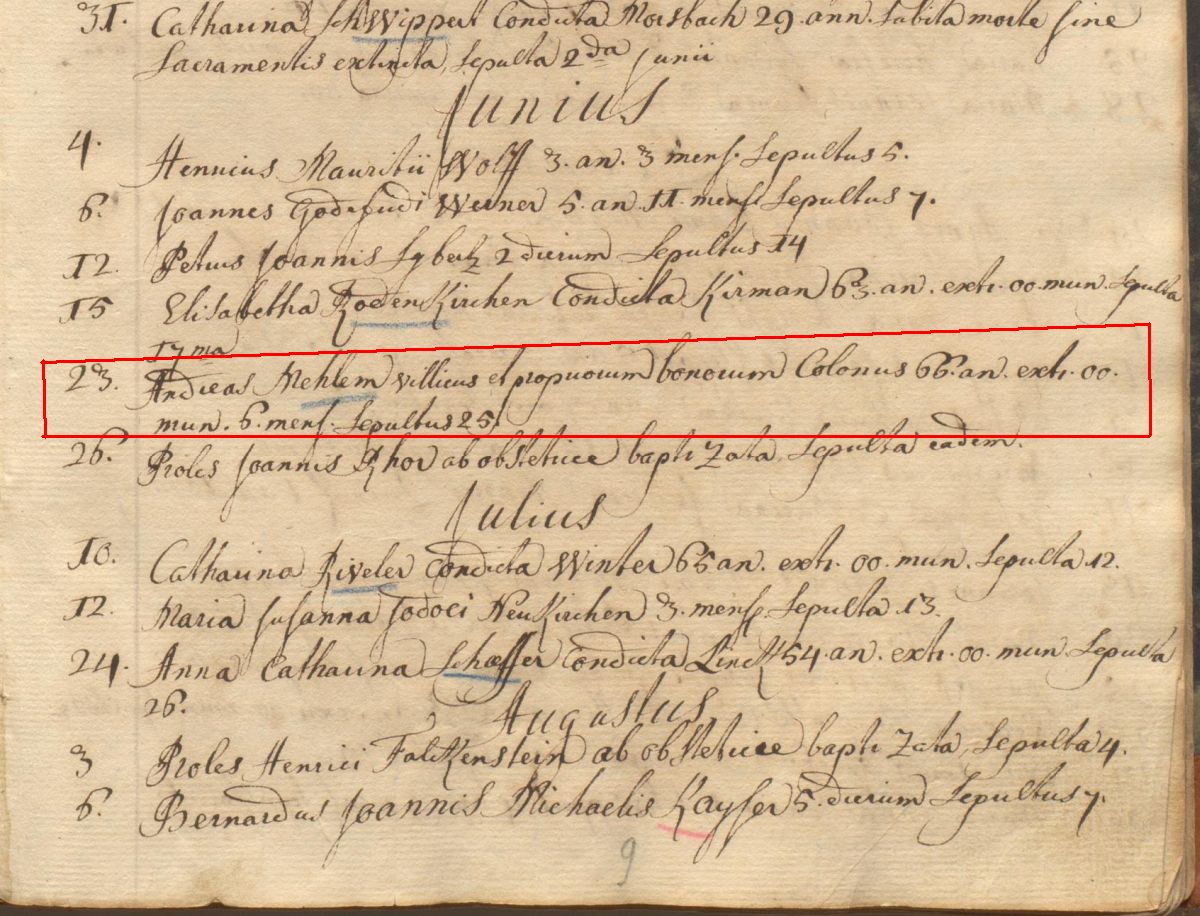 31. Catharina Schwippert Condicta Morsbach 29. ann. Subita morte sine
Sacramentis extincta, Sepulta 2da Junii
Junius
4. Henricus Mauritii Wolff 3. an. 3 mens. Sepultus 5.
6. Joannes Godefridi Werner 5. an. 11. mens. Sepultus 7.
12. Petrus Joannis Sybertz 2 dierum Sepultus 14
15 Elisabetha Rodenkirchen Condicta Kirman 63. an. extr. oo. mun. Sepulta
17ma
23. Andreas Mehlem villicus et propriorum bonorum Colonus 66. an. extr. oo.
mun. 6. mens. Sepultus 25.
26. Proles Joannis Rhor ab obstetrice baptizata, Sepulta eadem.
Julius
10. Catharina Riveler Condicta Winter 65 an. extr. oo. mun. Sepulta 12.
12. Maria Susanna Jodoci Neukirchen 3. mens. Sepulta 13.
24. Anna Catharina Schæffer Condicta Linck 54. an. extr. oo. mun. Sepulta
26.
Augustus
3 Proles Henrici Falckenstein ab obstetrice baptizata, Sepulta 4.
6. Bernardus Joannis Michaelis Kayser 5. dierum Sepultus 7.
9